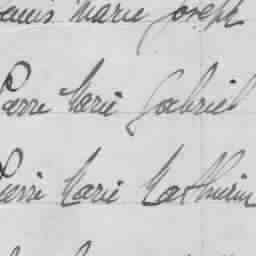 Marie Joseph
Pierre Marie Gabriel
Pierre Marie Mathurin